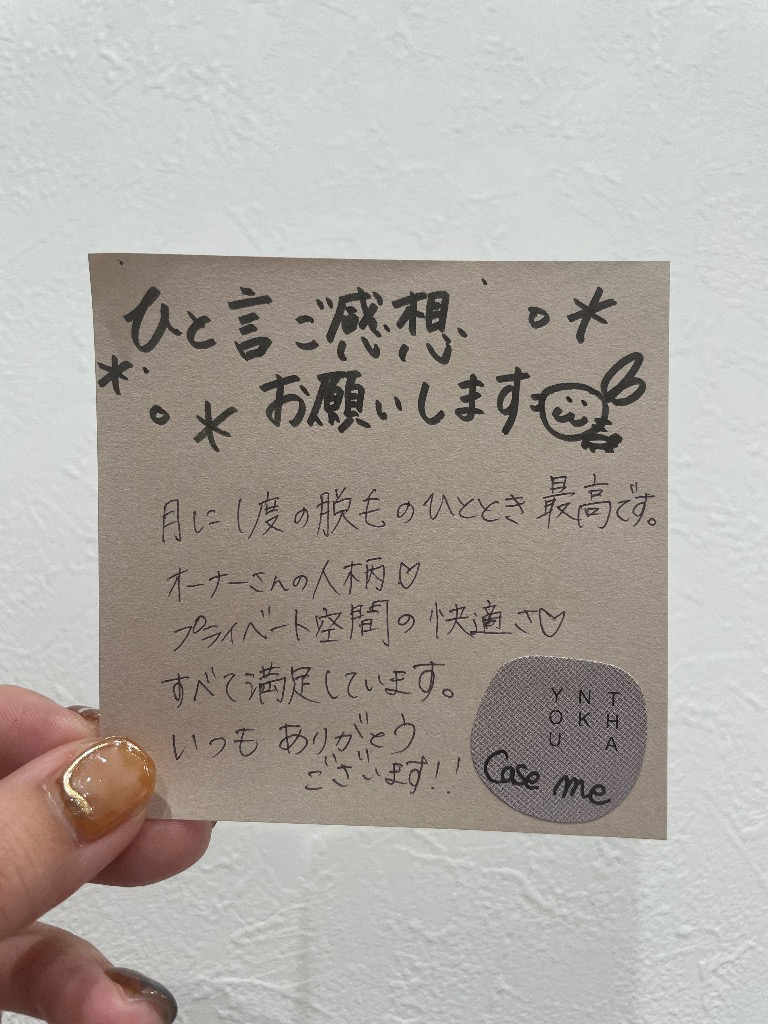 ひと言ご感想、
お願いします
月に1度の脱毛のひととき最高です。
オーナーさんの人柄♡
プライベート空間の快適さ♡
すべて満足しています。
いつもありがとう
ございます!!
THA
NK
YOU
Case me